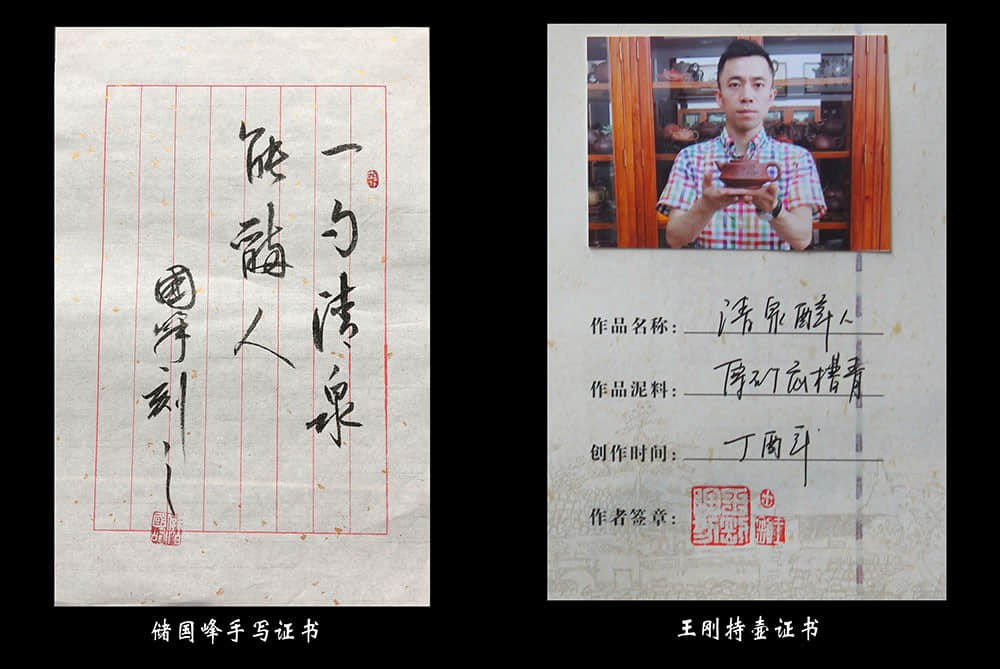 一勺清泉
能醉人
国峰刻之
储国峰手写证书
作品名称：清泉醉人
作品泥料：原矿底槽青
创作时间：丁酉年
作者签章：
王刚持壶证书